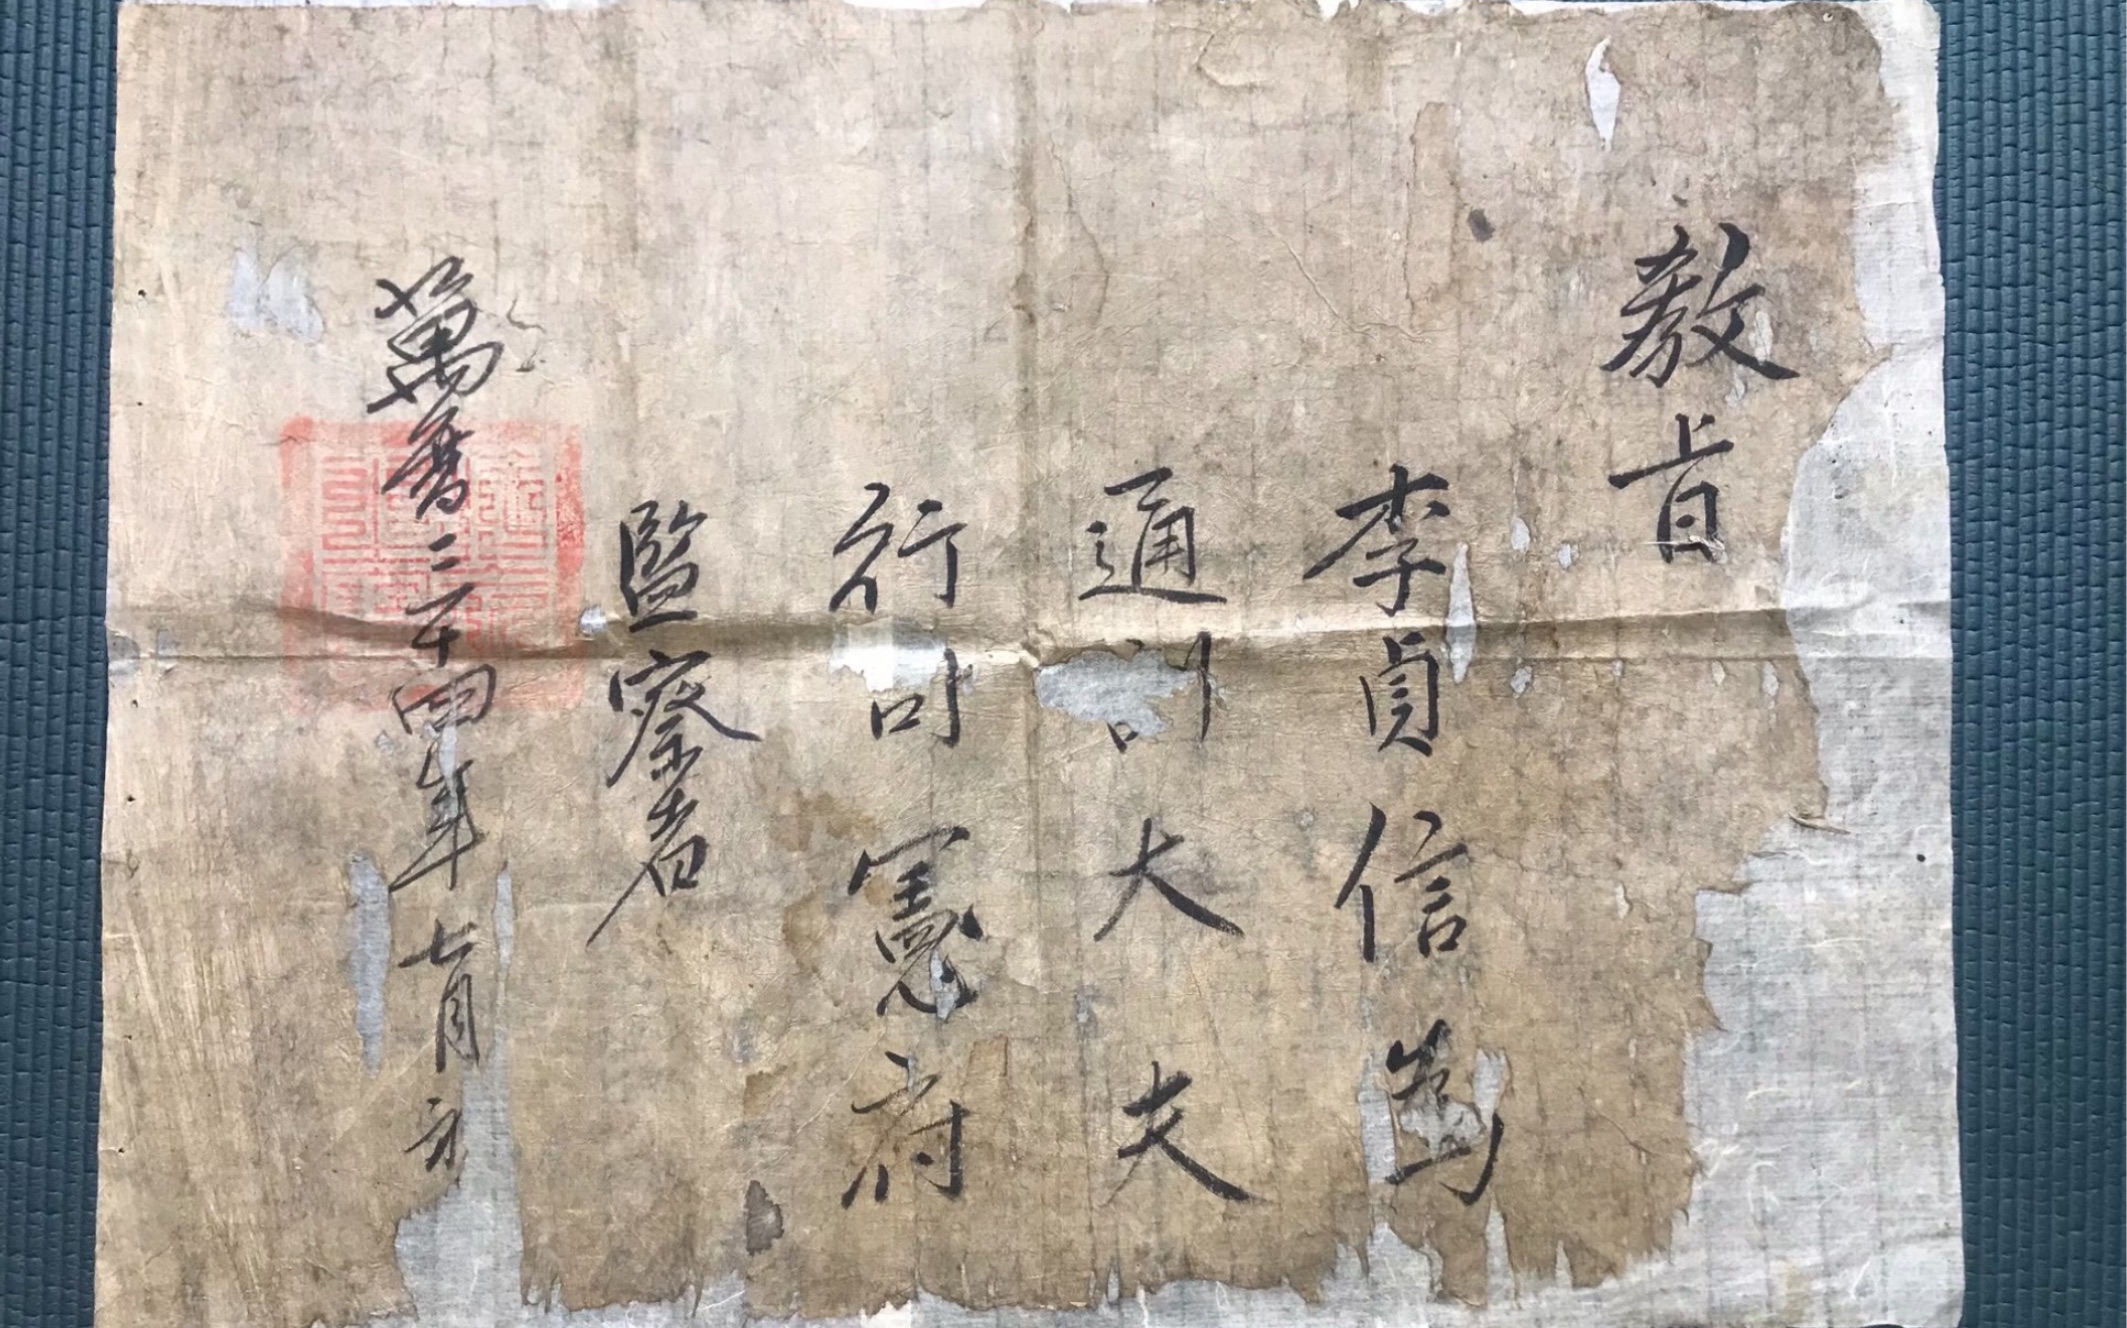 教旨
李貞信爲
通訓大夫
行司憲府
監察者
萬曆三十四年七月初